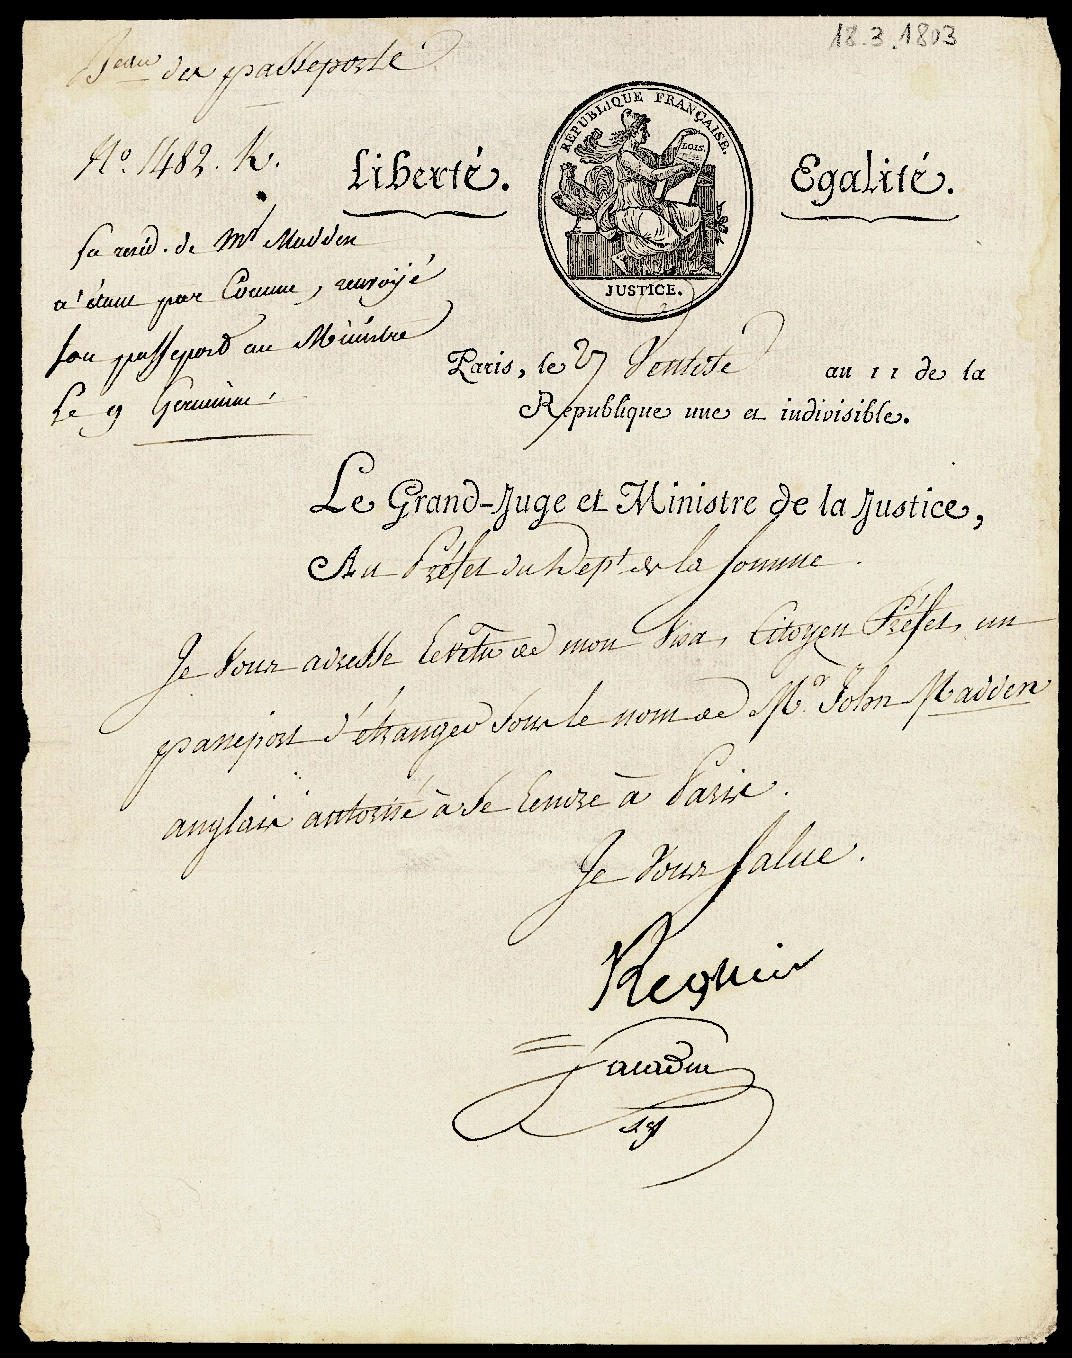 18.3.1803
Beau des passeports
N.º 1482. K.
Liberté.
RÉPUBLIQUE FRANÇAISE.
LOIS.
JUSTICE.
Egalité.
la resid. de Mr Madden
n'étant pas connue, renvoyé
son passeport au Ministre
Le 9 Germinal.
Paris, le 27 Ventôse an 11 de la
République une et indivisible.
Le Grand-Juge et Ministre de la Justice,
Au Préfet du Dept de la Somme.
Je vous adresse revêtu de mon Visa, Citoyen Préfet, un
passeport d'étranger sous le nom de Mr. John Madden
anglais autorisé à se rendre à Paris.
Je vous salue.
Regnier